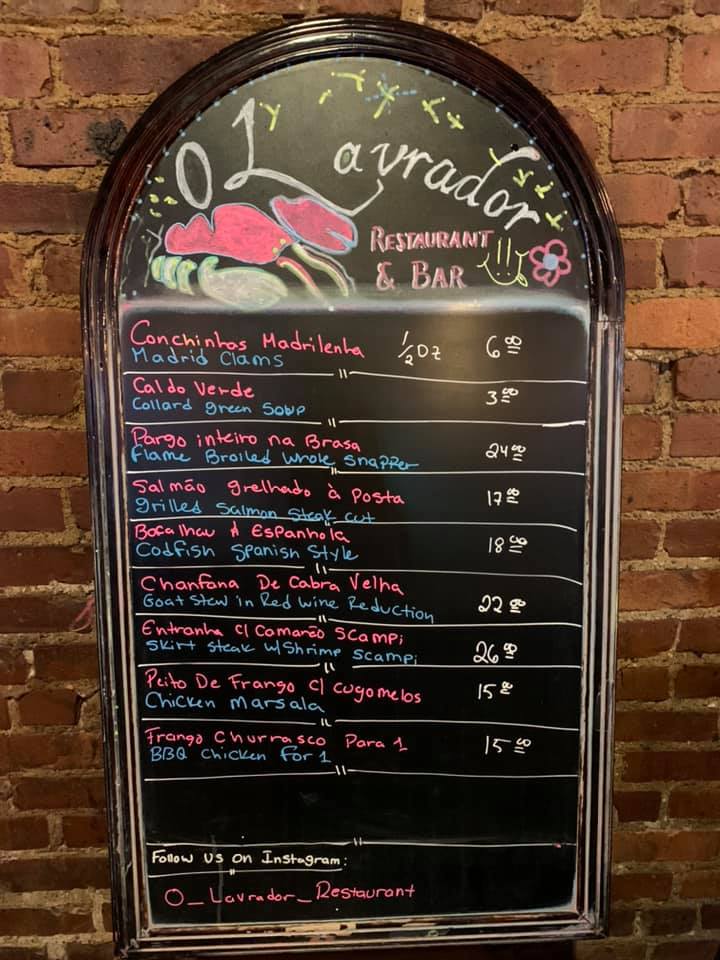 O Lavrador
RESTAURANT
& BAR
Conchinhas Madrilenha 1/2 Dz 6.00
Madrid Clams
Caldo Verde 3.00
Collard green Soup
Pargo inteiro na Brasa 24.00
Flame Broiled Whole Snapper
Salmão grelhado à Posta 17.00
grilled Salmon Steak cut
Bacalhau À Espanhola 18.00
Codfish Spanish Style
Chanfana De Cabra Velha 22.00
Goat Stew in Red Wine Reduction
Entranha c/ Camarão Scampi 26.00
Skirt Steak w/Shrimp Scampi
Peito De Frango c/ Cugomelos 15.00
Chicken Marsala
Frango Churrasco Para 1 15.00
BBQ Chicken For 1
Follow us on Instagram:
O_Lavrador_Restaurant